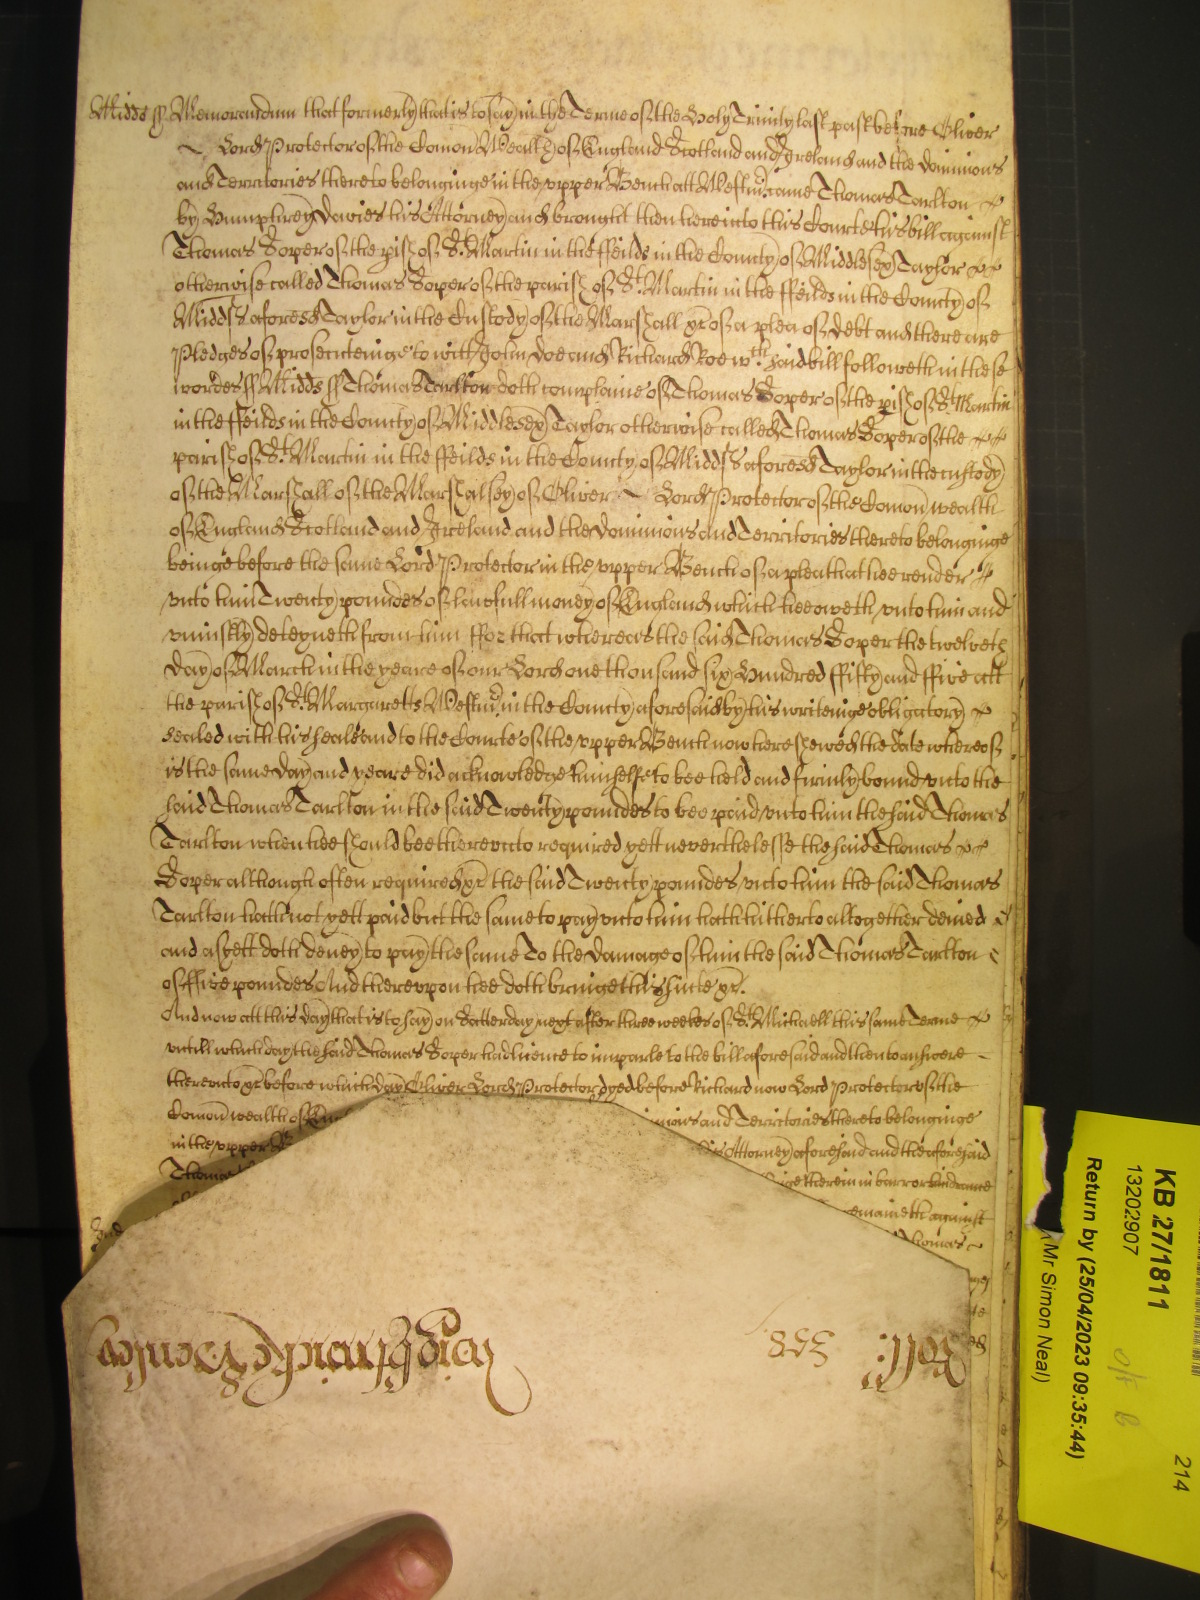 Midds ss Memorandum that formerly that is to say in the Terme of the Holy Trinity last past before Oliver
Lord Protector of the Comon Wealth of England Scotland and Ireland and the dominions
and Territories thereto belonginge in the vpper Bench att Westm̃ came Thomas Tarlton
by Humphrey Davies his Attorney and brought then here into this Courte his bill against
Thomas Soper of the pish of St. Martin in the ffeilds in the County of Middlesex Taylor
otherwise called Thomas Soper of the parish of St. Martin in the ffeilds in the County of
Midds aforesd Taylor in the Custody of the Marshall &c of a plea of debt and there are
Pledges of prosecuteinge to witt John doe and Richard Roe wch. said bill followeth in these
wordes ss Midds ss Thomas Tarlton doth complaine of Thomas Soper of the pish of St. Martin
in the ffeilds in the County of Middlesex Taylor otherwise called Thomas Soper of the
parish of St. Martin in the ffeilds in the County of Midds aforesd Taylor in the custody
of the Marshall of the Marshalsey of Oliver Lord Protector of the Comon wealth
of England Scotland and Ireland and the dominions and Territories thereto belonginge
beinge before the same Lord Protector in the vpper Bench of a plea that hee render
vnto him Twenty poundes of lawfull money of England which hee oweth vnto him and
vniustly deteyneth from him ffor that whereas the said Thomas Soper the twelveth
day of March in the yeare of our Lord one thousand six hundred ffifty and ffive att
the parish of St. Margaretts Westm̃ in the County aforesaid by his writeinge obligatory
sealed with his seale and to the Courte of the vpper Bench now here shewed the date whereof
is the same day and yeare did acknowledge himselfe to bee held and firmly bound vnto the
said Thomas Tarlton in the said Twenty poundes to bee paid vnto him the said Thomas
Tarlton when hee should bee therevnto required yett neverthelesse the said Thomas
Soper although often required &c the said Twenty poundes vnto him the said Thomas
Tarlton hath not yett paid but the same to pay vnto him hath hitherto altogether denied
and as yett doth deney to pay the same To the damage of him the said Thomas Tarlton
of ffive poundes And therevpon hee doth bringe this suite &c.
And now att this day that is to say on Satterday next after three weekes of St. Michaell this same Terme
vntill which day the said Thomas Soper had licence to imparle to the bill aforesaid and then to answere
therevnto &c before which day Oliver Lord Protector dyed before Richard now Lord Protector of the
Comon wealth of minions and Territories thereto belonginge
in the vpper his Attorney aforesaid and the aforesaid
Thomas therein in barr or hindrance
remaineth against
Thomas
Roll: 338